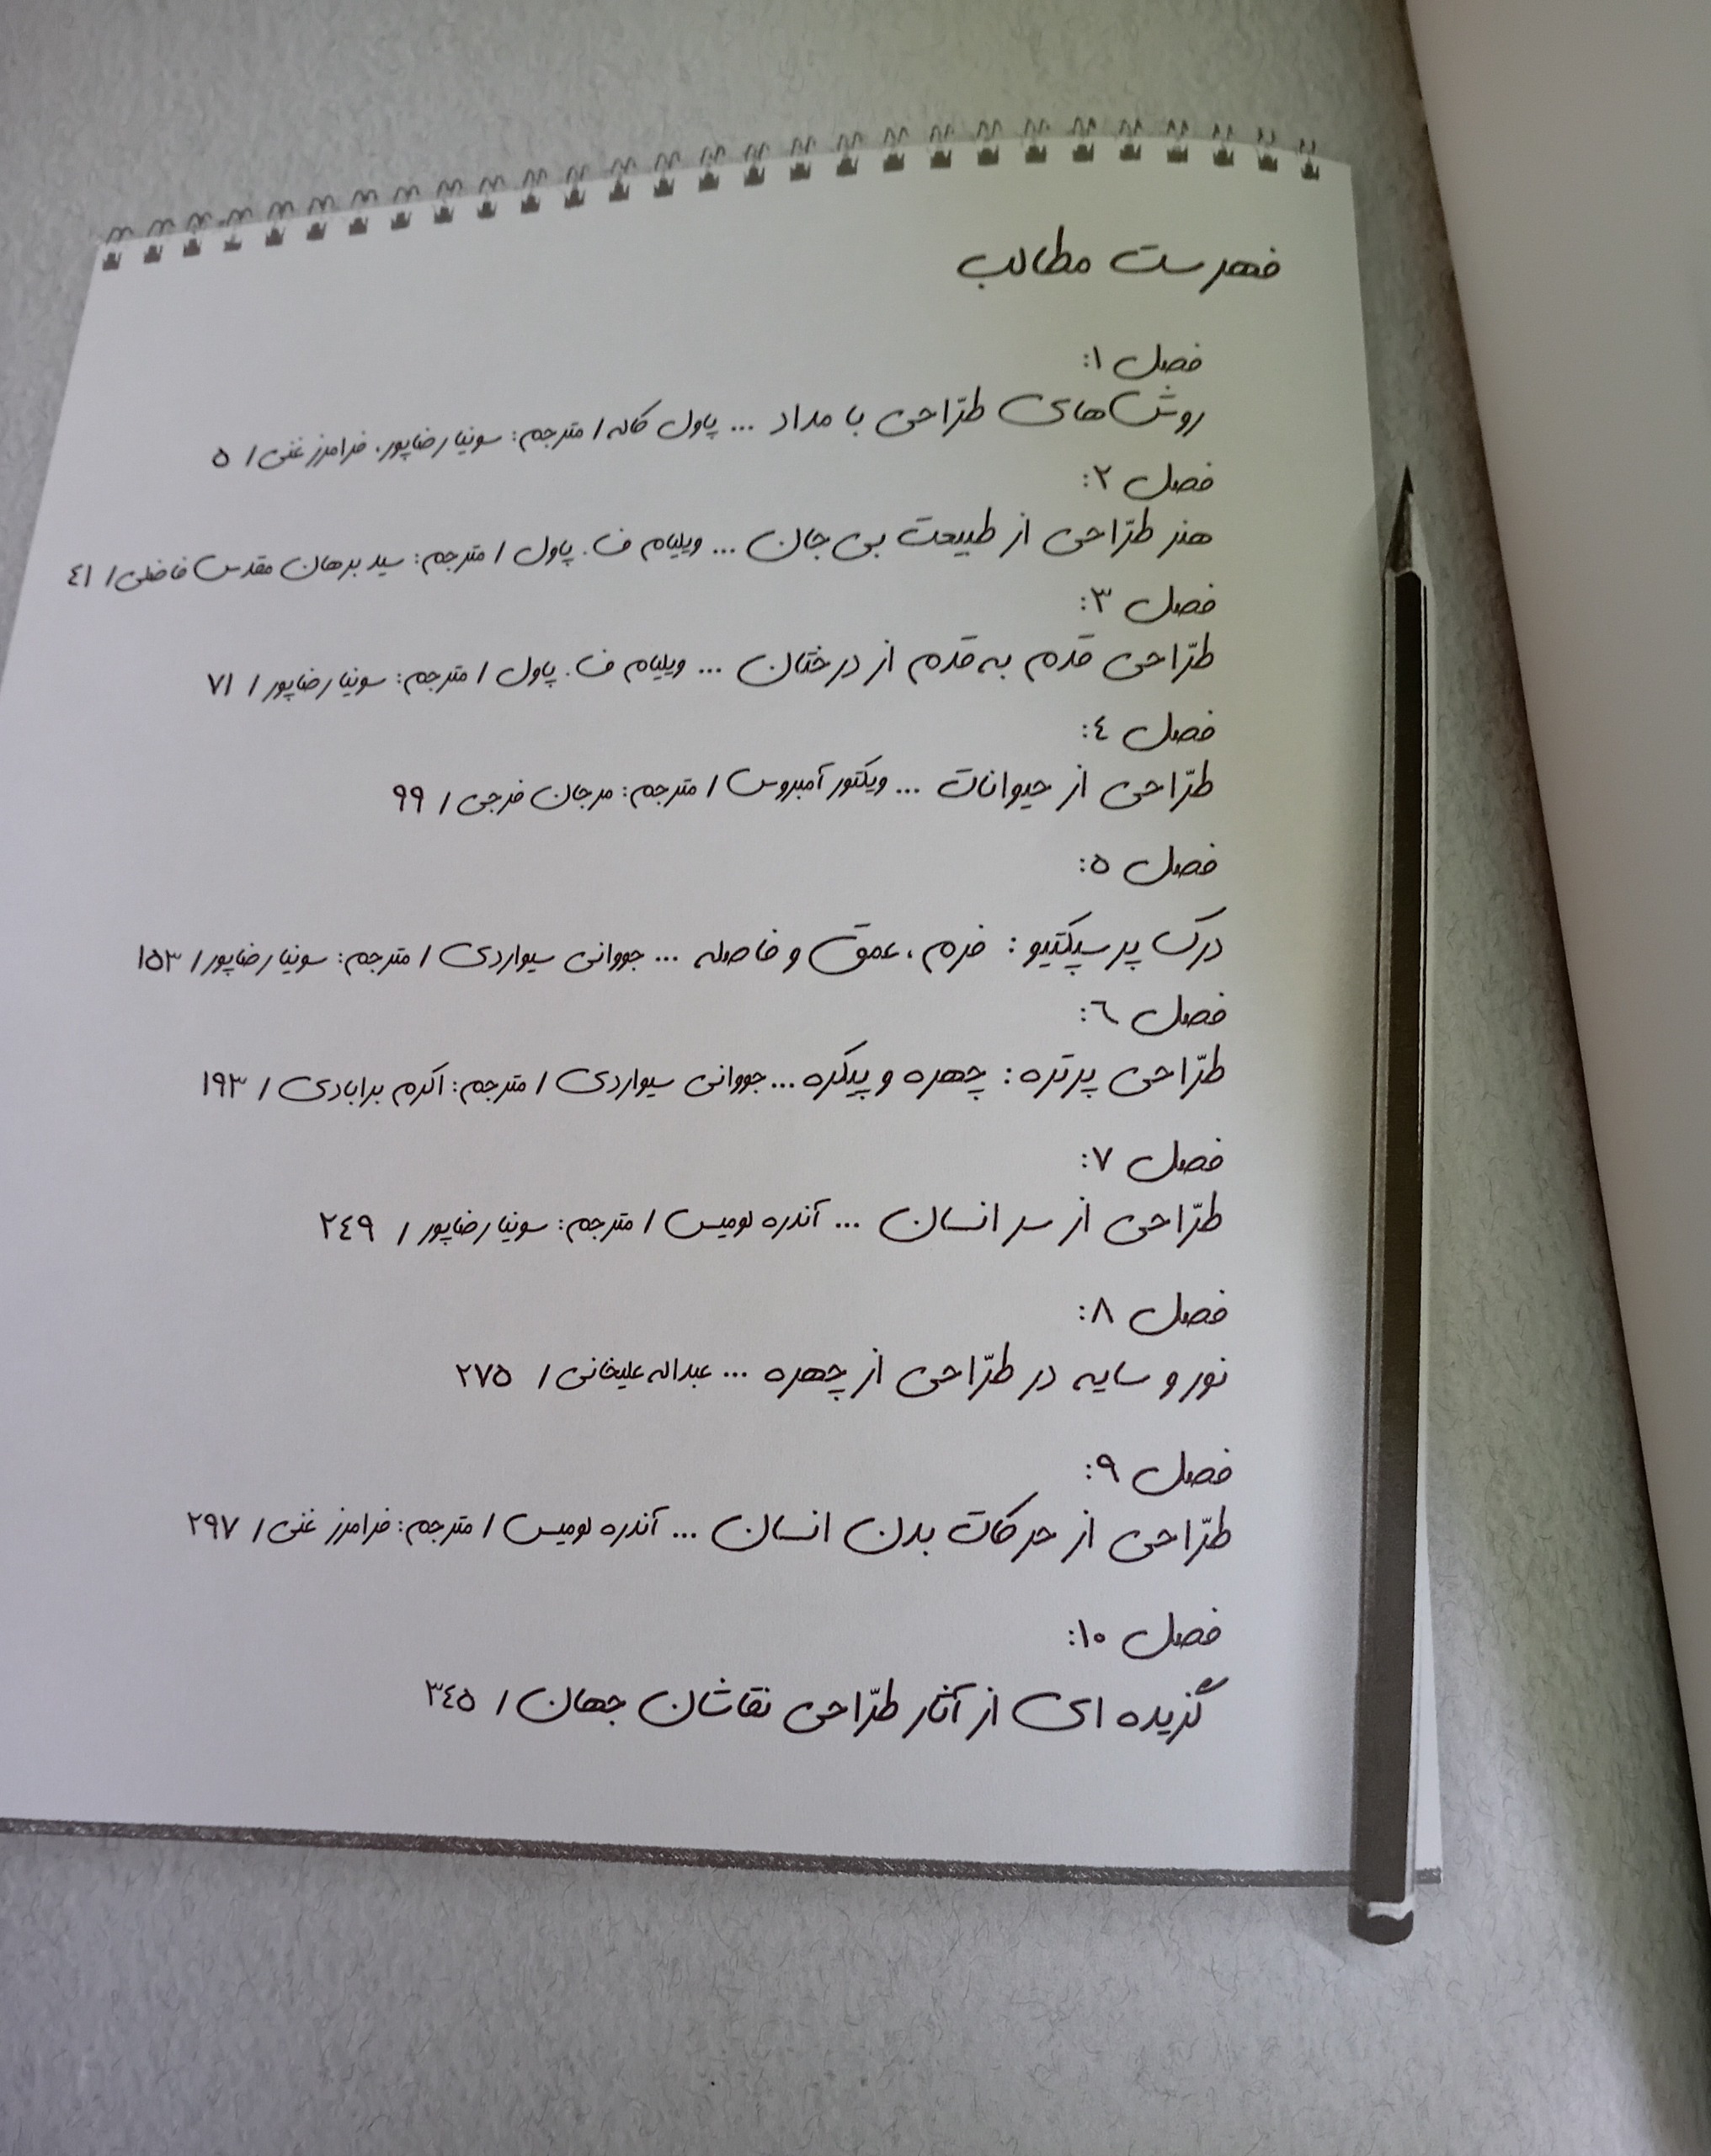 فهرست مطالب
فصل ۱:
روش‌های طرّاحی با مداد ... پاول کاله / مترجم: سونیا رضاپور، فرامرز غنی / ۵
فصل ۲:
هنر طرّاحی از طبیعت بی‌جان ... ویلیام ف. پاول / مترجم: سید برهان مقدس فاضلی / ٤۱
فصل ۳:
طرّاحی قدم به قدم از درختان ... ویلیام ف. پاول / مترجم: سونیا رضاپور / ۷۱
فصل ٤:
طرّاحی از حیوانات ... ویکتور آمبروس / مترجم: مرجان فرجی / ۹۹
فصل ۵:
درک پرسپکتیو: فرم، عمق و فاصله ... جووانی سیواردی / مترجم: سونیا رضاپور / ۱۵۳
فصل ٦:
طرّاحی پرتره: چهره و پیکره ... جووانی سیواردی / مترجم: اکرم برابادی / ۱۹۳
فصل ۷:
طرّاحی از سر انسان ... آندره لومیس / مترجم: سونیا رضاپور / ۲٤۹
فصل ۸:
نور و سایه در طرّاحی از چهره ... عبداله علیخانی / ۲۷۵
فصل ۹:
طرّاحی از حرکات بدن انسان ... آندره لومیس / مترجم: فرامرز غنی / ۲۹۷
فصل ۱۰:
گزیده ای از آثار طرّاحی نقاشان جهان / ۳٤۵